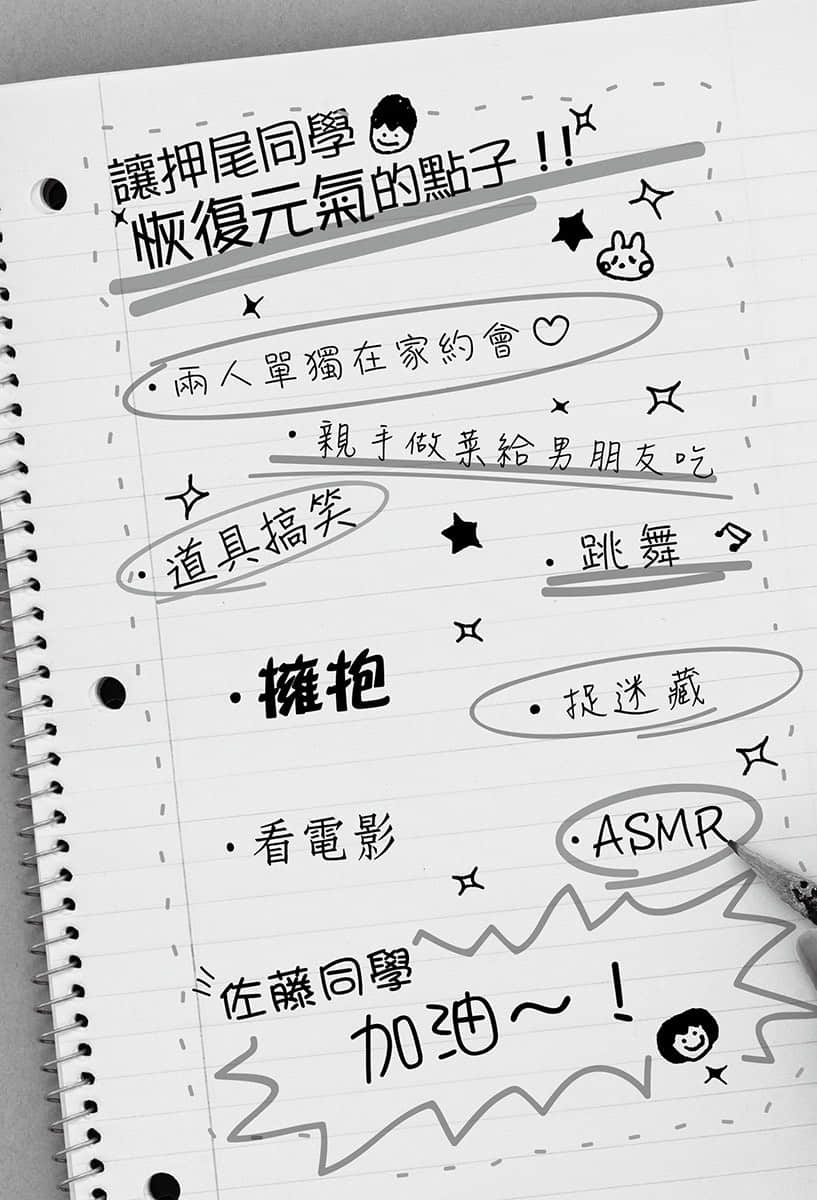 讓押尾同學
恢復元氣的點子!!
・兩人單獨在家約會♡
・親手做菜給男朋友吃
・道具搞笑
・跳舞♫
・擁抱
・捉迷藏
・看電影
・ASMR
佐藤同學
加油～!